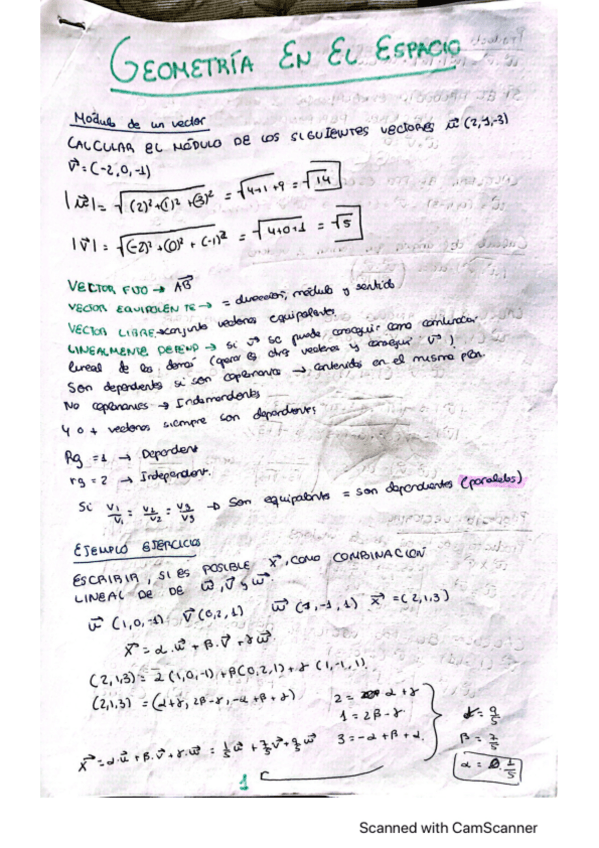 GEOMETRÍA EN EL ESPACIO
Módulo de un vector
CALCULAR EL MÓDULO DE LOS SIGUIENTES VECTORES u⃗ (2,1,-3)
v⃗ = (-2,0,-1)
|u⃗| = √(2)²+(1)²+(3)² = √4+1+9 = √14
|v⃗| = √(-2)²+(0)²+(-1)² = √4+0+1 = √5
VECTOR FIJO → AB⃗
VECTOR EQUIPOLENTE → = dirección, módulo y sentido
VECTOR LIBRE → conjunto vectores equipolentes
LINEALMENTE DEPEND → si v⃗ se puede conseguir como combinación
lineal de los demás (operar otros vectores y conseguir v⃗)
Son dependientes si son coplanarios → contenidos en el mismo plan.
No coplanarios → Independientes
4 o + vectores siempre son dependientes
Rg = 1 → Dependent
rg = 2 → Independent.
Si v₁/v₁ = v₂/v₂ = v₃/v₃ → Son equipolentes = son dependientes (paralelos)
EJEMPLO EJERCICIOS
ESCRIBIR, SI ES POSIBLE x⃗, COMO COMBINACIÓN
LINEAL DE DE u⃗, v⃗ y w⃗
u⃗ (1,0,-1) v⃗ (0,2,1) w⃗ (1,-1,1) x⃗ = (2,1,3)
x⃗ = α·u⃗ + β·v⃗ + γw⃗
(2,1,3) = α(1,0,-1) + β(0,2,1) + γ(1,-1,1)
(2,1,3) = (α+γ, 2β-γ, -α+β+γ)
2 = α+γ
1 = 2β-γ
3 = -α+β+α.
γ = 9/5
β = 7/5
α = 1/5
x⃗ = α·u⃗ + β·v⃗ + γ·w⃗ = 1/5 u⃗ + 7/5 v⃗ + 9/5 w⃗
1
Scanned with CamScanner